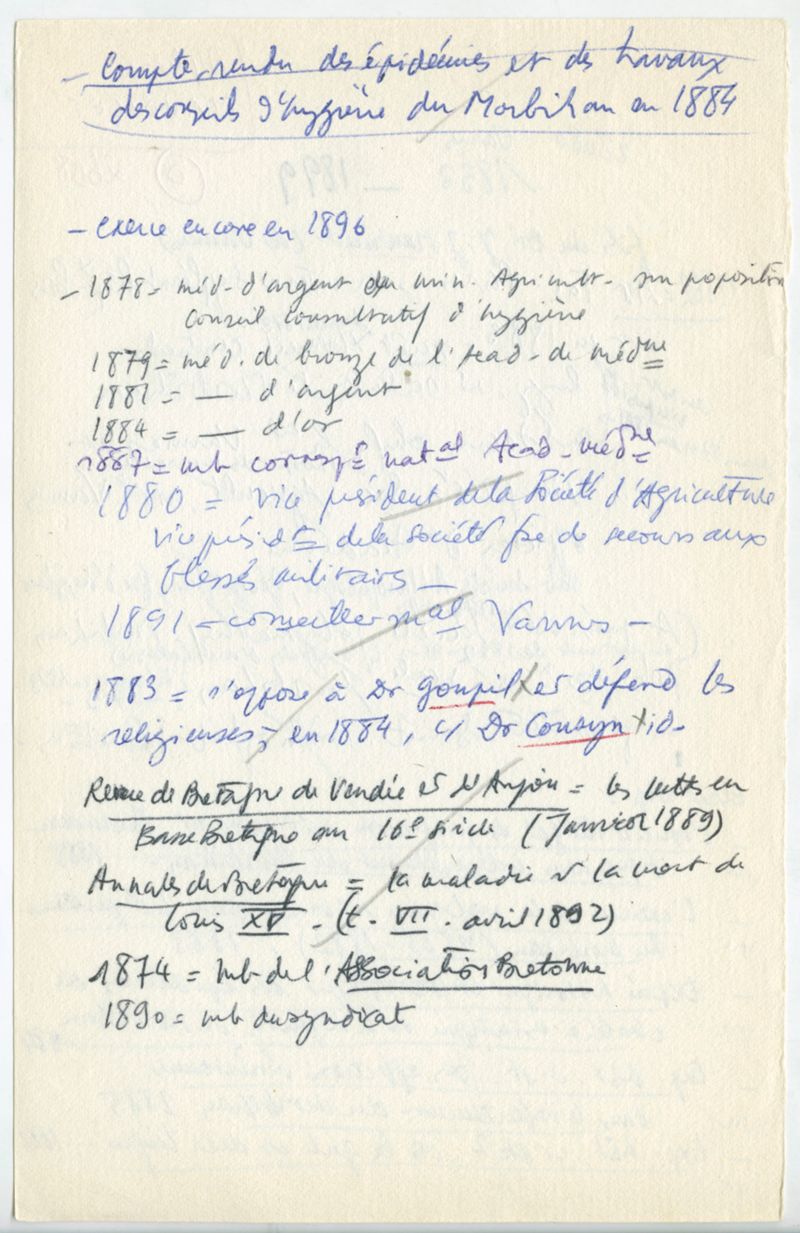 - Compte-rendu des épidémies et des travaux
des conseils d'hygiène du Morbihan en 1884
- exerce encore en 1896
- 1878 - méd. d'argent du min. Agricult. sur poposition
Conseil consultatif d'hygiène
1879 = méd. de bronze de l'Acad. de méd^ne
1881 = — d'argent
1884 = — d'or
1887 = mb corresp^t nat^al Acad. méd^ne
1880 = vice président de la Société d'Agriculture
vice présid^t de la société fse de secours aux
blessés militairs —
1891 - conseiller m^al Vannes -
1883 = s'oppose à Dr Goupil x et défend les
religieuses ; en 1884, c/ Dr Cousyn x id.
Revue de Bretagne de Vendée et d'Anjou = les luttes en
Basse Bretagne au 16e siècle (Janvier 1889)
Annales de Bretagne = la maladie et la mort de
Louis XV. (t. VII. avril 1892)
1874 = mb de l'Association Bretonne
1890 = mb du syndicat